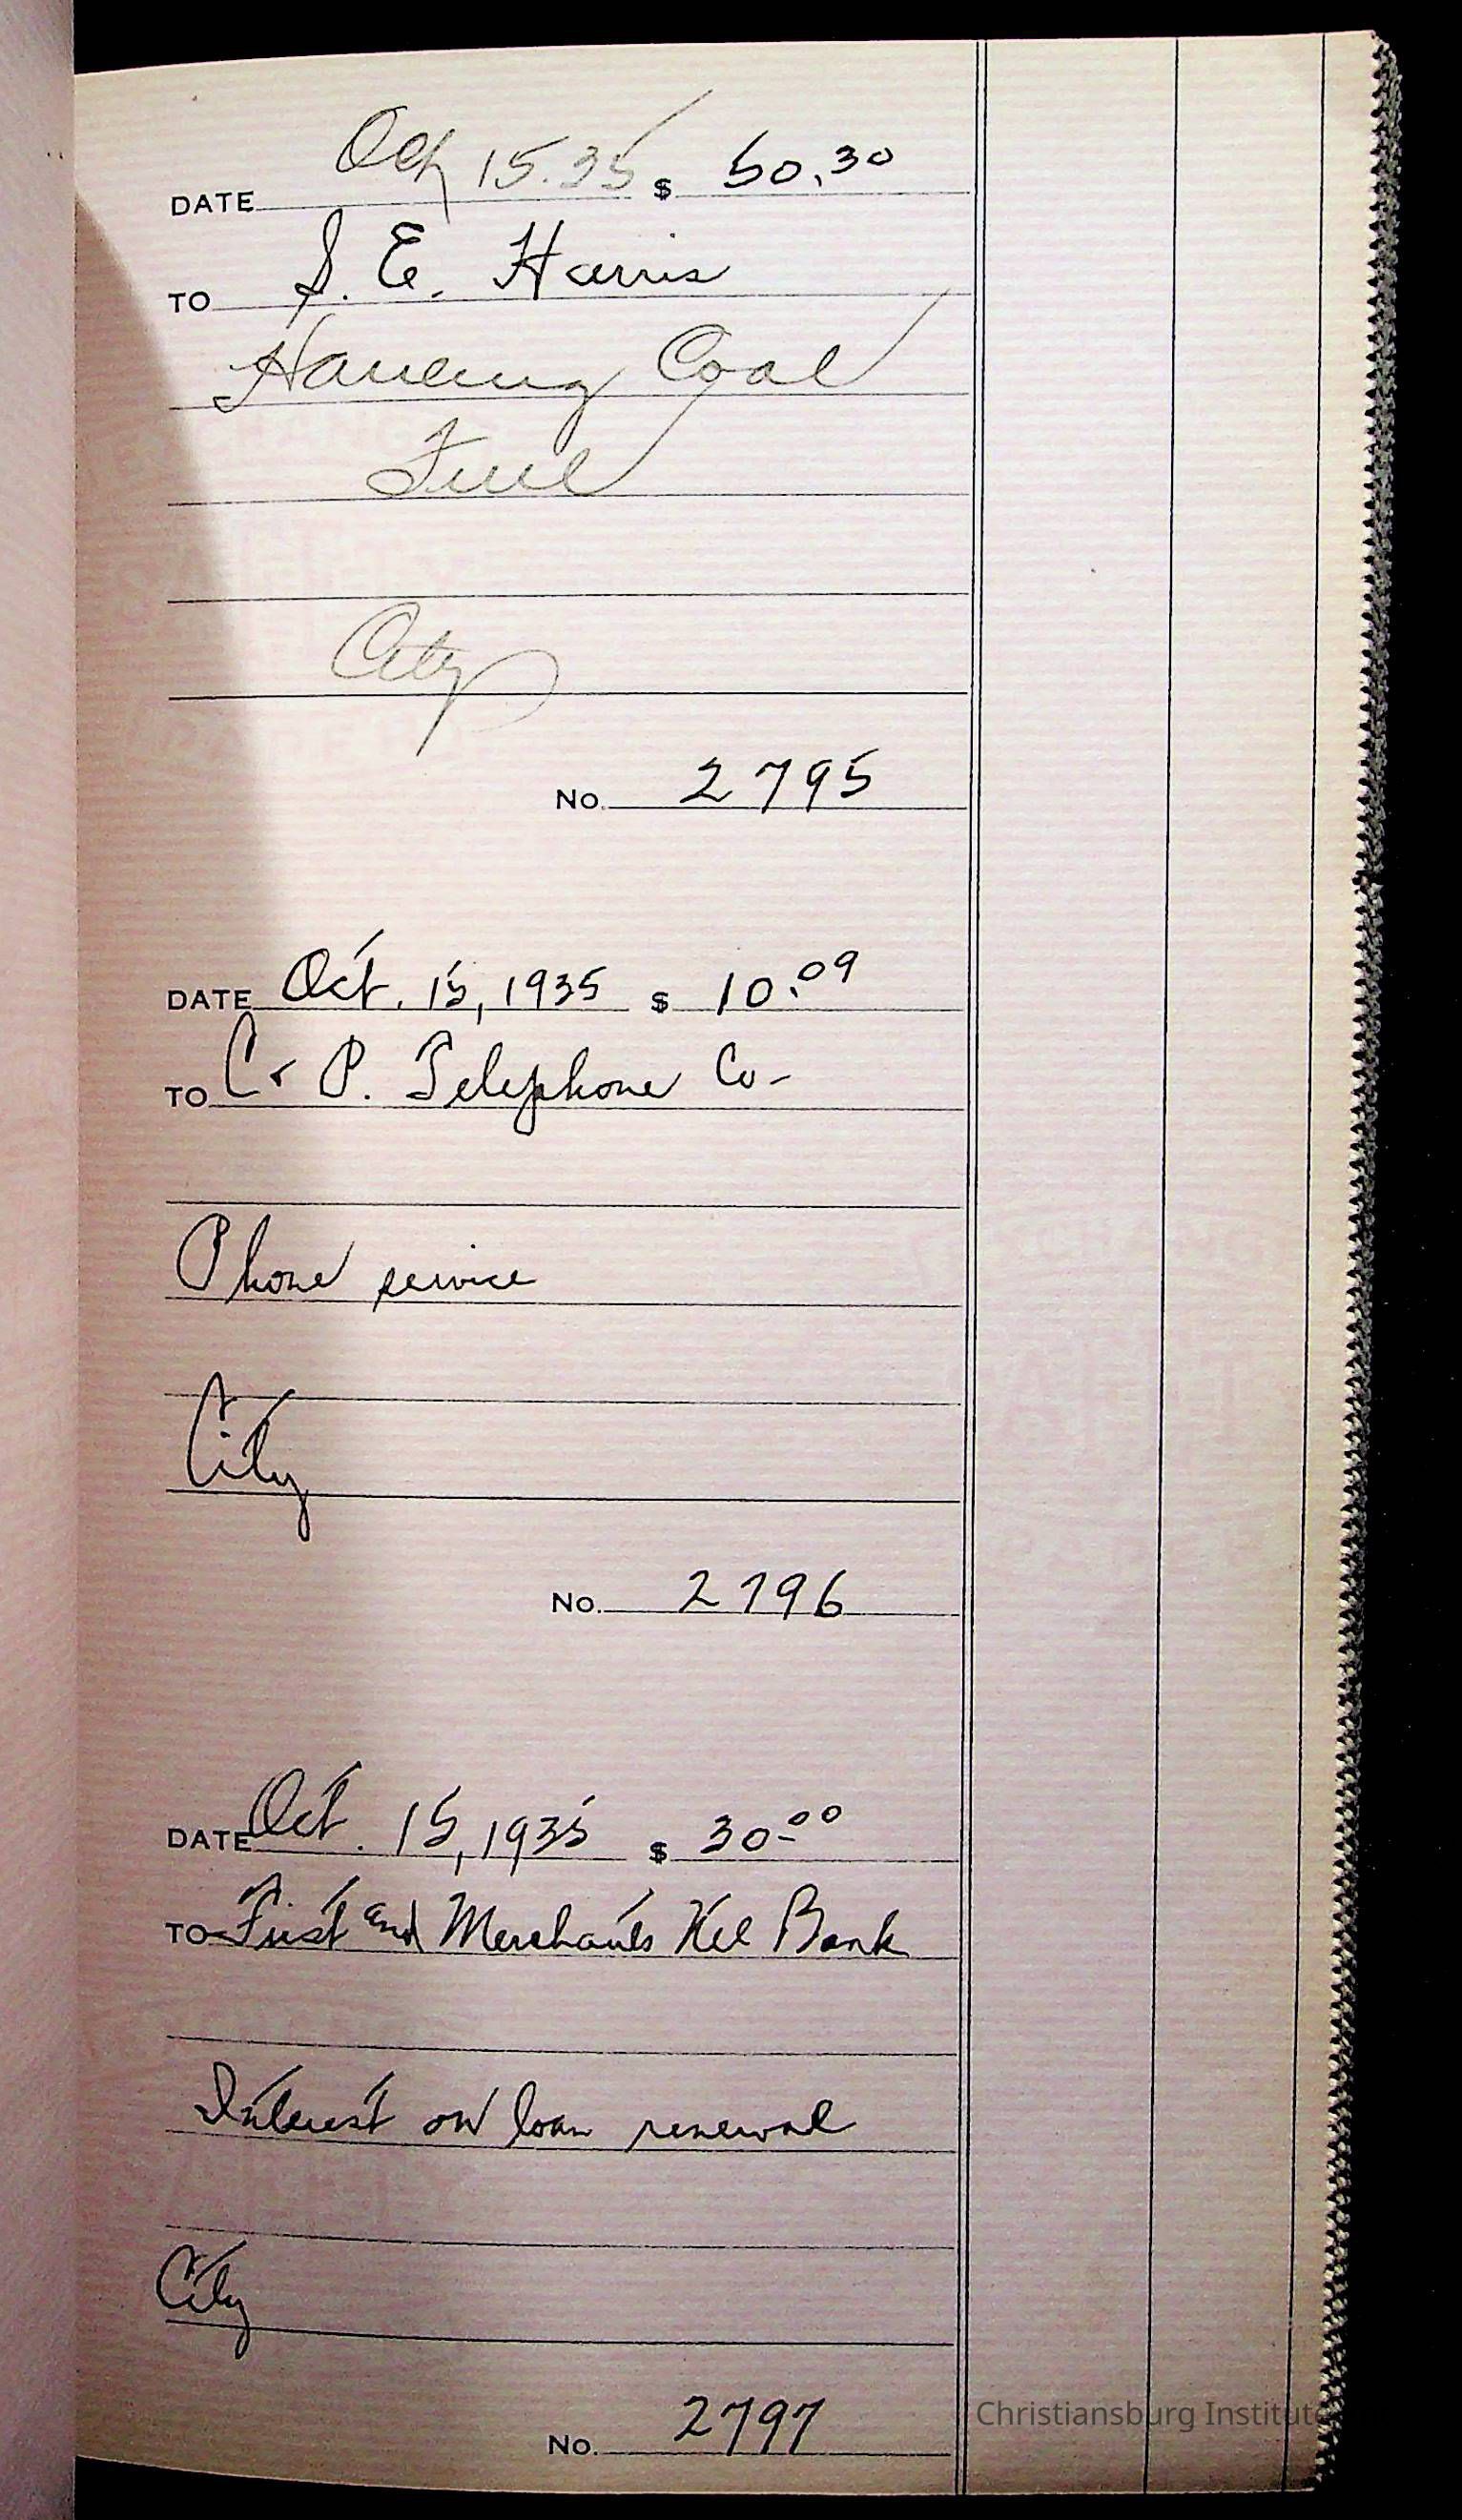 DATE Oct 15.35 $ 50.30
TO S. E. Harris
Hauling Coal
Fuel
City
No. 2795
DATE Oct. 15, 1935 $ 10.09
TO C & P. Telephone Co-
Phone service
City
No. 2796
DATE Oct. 15, 1935 $ 30.00
TO First and Merchants Bank
Interest on loan renewal
City
No. 2797
Christiansburg Institute